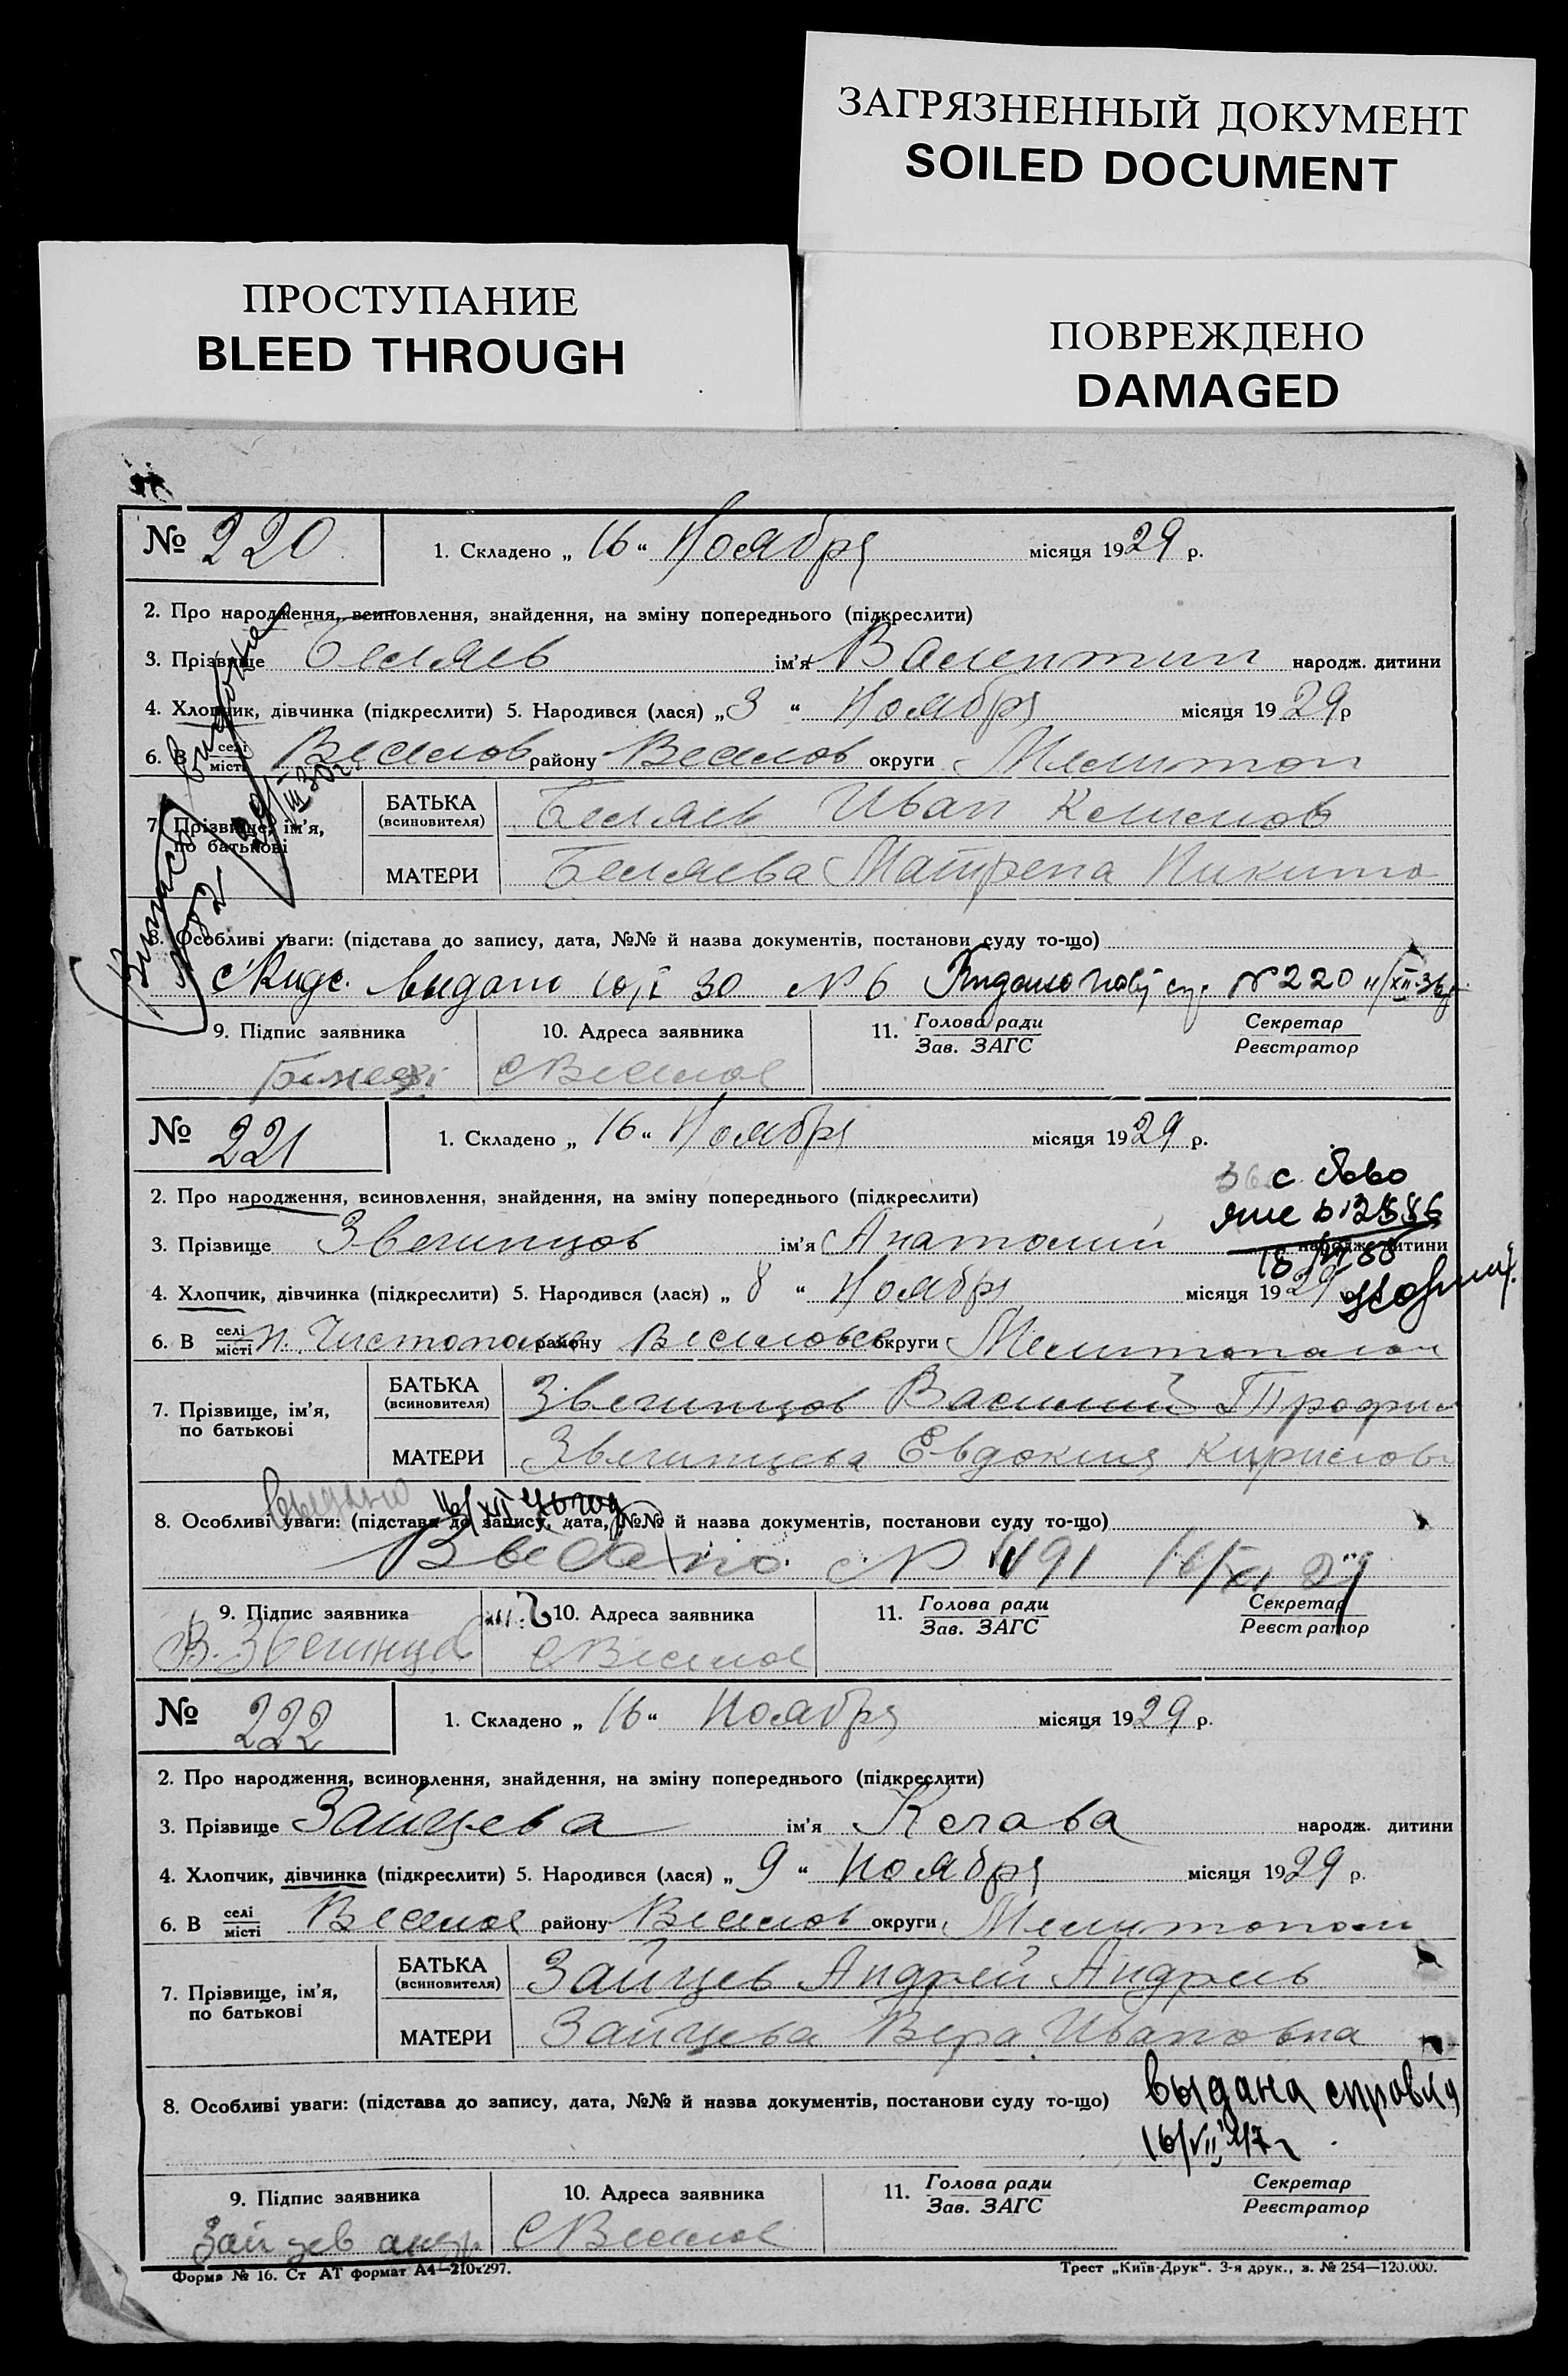 ЗАГРЯЗНЕННЫЙ ДОКУМЕНТ
SOILED DOCUMENT
ПРОСТУПАНИЕ
BLEED THROUGH
ПОВРЕЖДЕНО
DAMAGED
№ 220
1. Складено „ 16 “ Ноября місяця 1929 р.
2. Про народження, всиновлення, знайдення, на зміну попереднього (підкреслити)
3. Прізвище Беляев ім'я Валентин народж. дитини
4. Хлопчик, дівчинка (підкреслити) 5. Народився (лася) „ 3 “ Ноября місяця 19 29 р
6. В селі місті Веселов району Веселов округи Мелитоп
7. Прізвище, ім'я, по батькові
БАТЬКА (всиновителя) Беляев Иван Климов
МАТЕРИ Беляева Матрена Никито
8. Особливі уваги: (підстава до запису, дата, №№ й назва документів, постанови суду то-що)
выдано 30 № 6 № 220
9. Підпис заявника
10. Адреса заявника
11. Голова ради Зав. ЗАГС
Секретар Реєстратор
С Веселое
№ 221
1. Складено „ 16 “ Ноября місяця 1929 р.
2. Про народження, всиновлення, знайдення, на зміну попереднього (підкреслити)
3. Прізвище Звегинцов ім'я Анатолий народж. дитини
4. Хлопчик, дівчинка (підкреслити) 5. Народився (лася) „ 8 “ Ноября місяця 19 29
6. В селі місті Н. Чистополье району Веселовск округи Мелитопол
7. Прізвище, ім'я, по батькові
БАТЬКА (всиновителя) Звегинцов Василий Трофим
МАТЕРИ Звегинцева Евдокия Кирилов
8. Особливі уваги: (підстава до запису, дата, №№ й назва документів, постанови суду то-що)
9. Підпис заявника
10. Адреса заявника
11. Голова ради Зав. ЗАГС
Секретар Реєстратор
В. Звегинцов С Веселое
№ 222
1. Складено „ 16 “ Ноября місяця 1929 р.
2. Про народження, всиновлення, знайдення, на зміну попереднього (підкреслити)
3. Прізвище Зайцева ім'я Клава народж. дитини
4. Хлопчик, дівчинка (підкреслити) 5. Народився (лася) „ 9 “ Ноября місяця 1929 р.
6. В селі місті Веселое району Веселов округи Мелитопол
7. Прізвище, ім'я, по батькові
БАТЬКА (всиновителя) Зайцев Андрей Андреев
МАТЕРИ Зайцева Вера Ивановна
8. Особливі уваги: (підстава до запису, дата, №№ й назва документів, постанови суду то-що) выдана справка
16/VII 47г
9. Підпис заявника
10. Адреса заявника
11. Голова ради Зав. ЗАГС
Секретар Реєстратор
Зайцев андр С Веселое
Форма № 16. Ст АТ формат А4—210х297.
Трест „Київ-Друк“. 3-я друк., з. № 254—120.000.